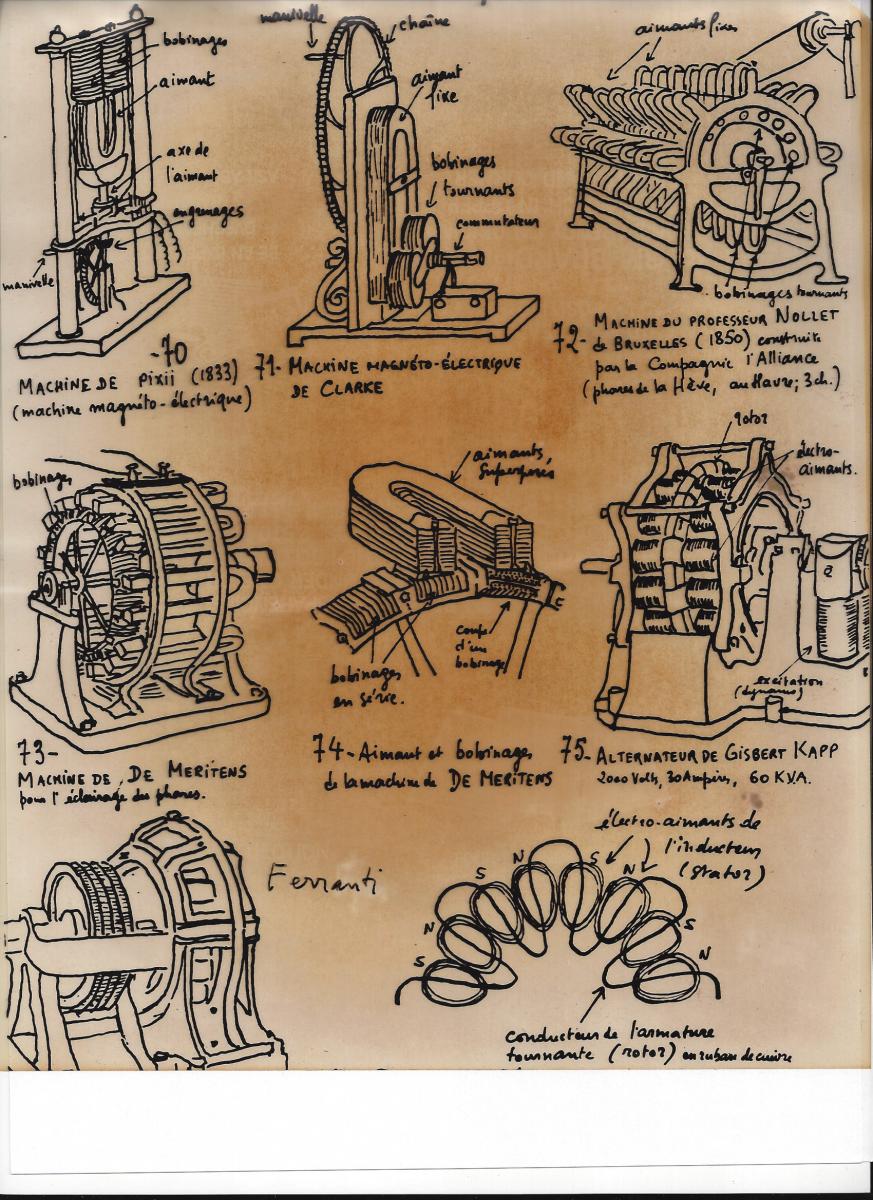 bobinages
aimant
axe de
l'aimant
engrenages
manivelle
-70
MACHINE DE PIXII (1833)
(machine magnéto-électrique)
manivelle
chaîne
aimant
fixe
bobinages
tournants
commutateur
71- MACHINE MAGNÉTO-ÉLECTRIQUE
DE CLARKE
aimants fixes
bobinages tournants
72- MACHINE DU PROFESSEUR NOLLET
de BRUXELLES (1850) construite
par la Compagnie l'Alliance
(phares de la Hève, au Havre; 3 ch.)
bobinages
73-
MACHINE DE DE MERITENS
pour l'éclairage des phares.
aimants
superposés
coupe
d'un
bobinage
bobinages
en série.
74- Aimant et bobinages
de la machine de DE MERITENS
rotor
électro-
aimants.
excitation
(dynamo)
75- ALTERNATEUR DE GISBERT KAPP
2000 Volts, 30 Ampères, 60 K.V.A.
Ferranti
électro-aimants de
l'inducteur
(stator)
S
N
S
N
S
N
S
N
conducteur de l'armature
tournante (rotor) en ruban de cuivre